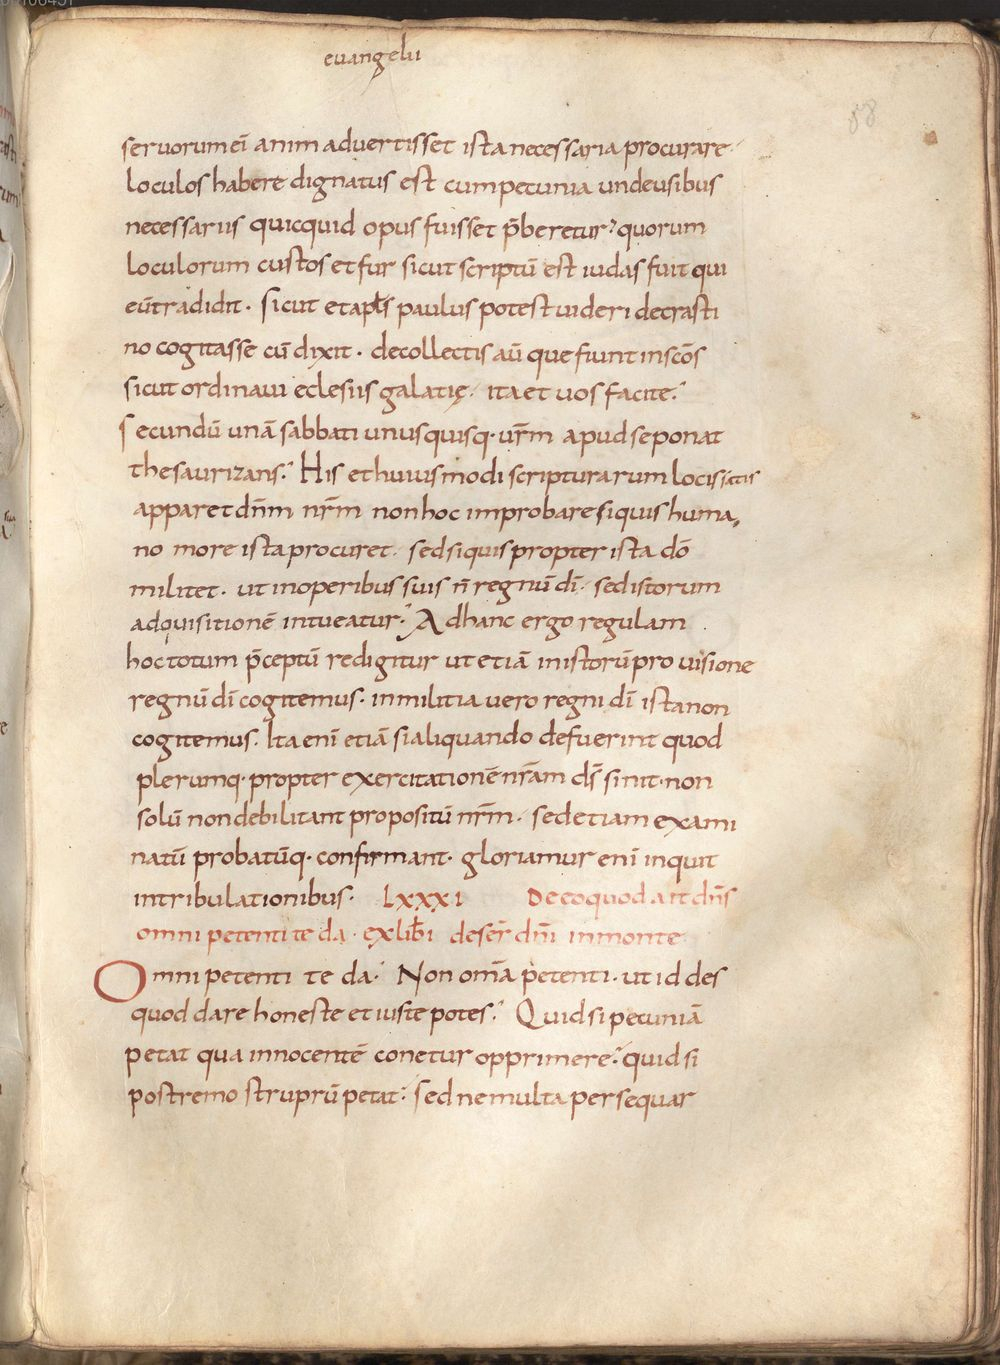 euangelii
58
seruorum eī animadvertisset ista necessaria procurare·
loculos habere dignatus est cum pecunia unde usibus
necessariis quicquid opus fuisset p̄beretur? quorum
loculorum custos et fur sicut scriptū est iudas fuit qui
eū tradidit· sicut et apłs paulus potest uideri de crasti
no cogitasse cū dixit· de collectis aū que fiunt in sc̄os
sicut ordinaui eclesiis galatię· ita et uos facite.
Secundū unā sabbati unusquisq· ur̄m apud se ponat
thesaurizans. His et huiusmodi scripturarum locis satis
apparet dn̄m nr̄m non hoc improbare si quis huma,
no more ista procuret· sed si quis propter ista dō
militet· ut in operibus suis n̄ regnū dī· sed istorum
adquisitionē intueatur. Ad hanc ergo regulam
hoc totum p̄ceptū redigitur ut etiā in istorū pro uisione
regnū dī cogitemus· in militia uero regni dī ista non
cogitemus. Ita enī etiā si aliquando defuerint quod
plerumq· propter exercitationē nr̄am ds̄ sinit· non
solū non debilitant propositū nr̄m· sed etiam exami
natū probatūq· confirmant· gloriamur enī inquit
in tribulationibus· LXXXI De eo quod ait dn̄s
omni petenti te da· ex lib̄ i de ser̄ dn̄i in monte
Omni petenti te da. Non om̄a petenti· ut id des
quod dare honeste et iuste potes. Quid si pecuniā
petat qua innocentē conetur opprimere? quid si
postremo struprū petat? sed ne multa persequar